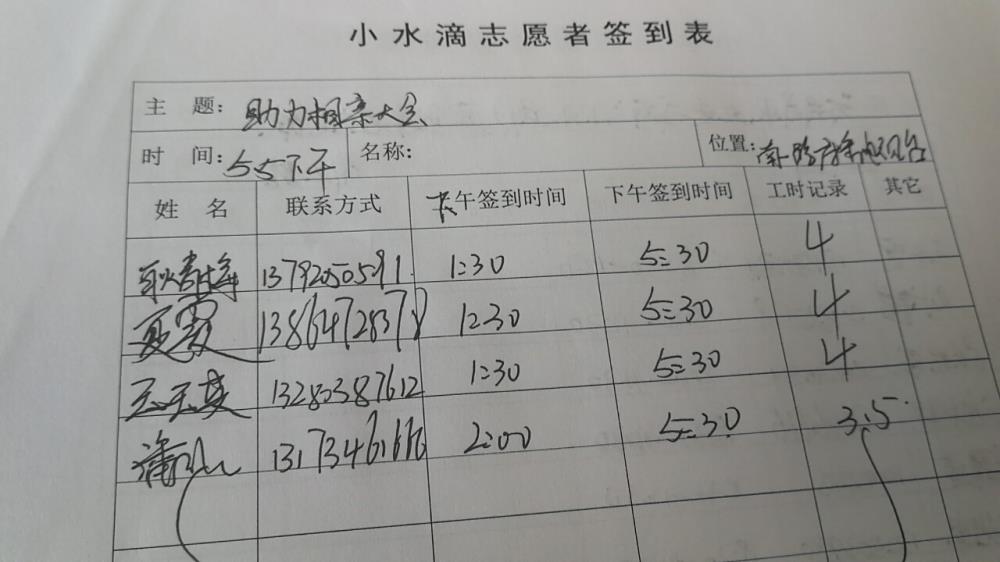 小水滴志愿者签到表
主 题: 助力相亲大会
时 间: 5.5下午 名称: 位置:
姓 名 联系方式 下午签到时间 下午签到时间 工时记录 其它
13792050591 1:30 5:30 4
夏霞 13864728378 1:30 5:30 4
13280387612 1:30 5:30 4
2:00 5:30 3.5